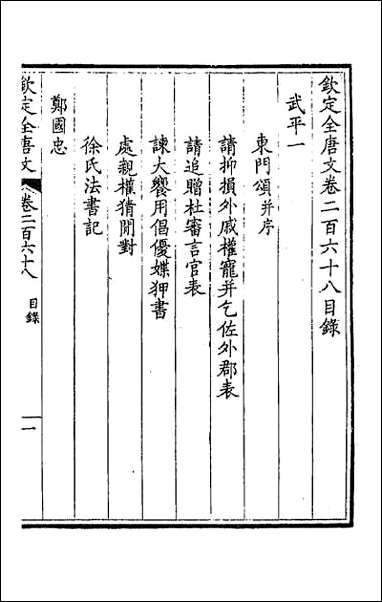 欽定全唐文卷二百六十八目錄
武平一
東門頌并序
請抑損外戚權寵并乞佐外郡表
請追贈杜審言官表
諫大饗用倡優媟狎書
處親權猜閒對
徐氏法書記
鄭國忠
欽定全唐文 卷二百六十八 目錄 一